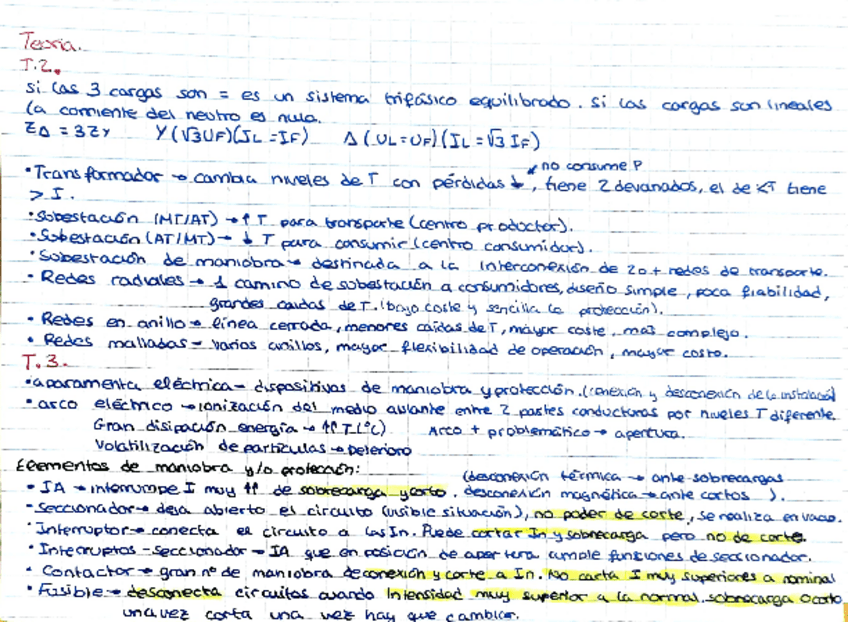 Teoría.
T.2.
Si las 3 cargas son = es un sistema trifásico equilibrado. Si las cargas son lineales
la corriente del neutro es nula.
ZΔ = 3Zy   Y(√3UF)(IL = IF)   Δ(UL=UF)(IL=√3 IF)
no consume P
• Transformador → cambia niveles de T con pérdidas ↓, tiene 2 devanados, el de <T tiene
> I.
• Subestación (MT/AT) → ↑ T para transporte (centro productor).
• Subestación (AT/MT) → ↓ T para consumir (centro consumidor).
• Subestación de maniobra → destinada a la interconexión de 2 o + redes de transporte.
• Redes radiales → 1 camino de subestación a consumidores, diseño simple, poca fiabilidad,
grandes caídas de T. (bajo coste y sencilla la protección).
• Redes en anillo → línea cerrada, menores caídas de T, mayor coste, más complejo.
• Redes malladas → varios anillos, mayor flexibilidad de operación, mayor costo.
T.3.
• aparamenta eléctrica → dispositivos de maniobra y protección. (conexión y desconexión de la instalación)
• arco eléctrico → ionización del medio aislante entre 2 partes conductoras por niveles T diferente.
Gran disipación energía → ↑↑ T (°C)   Arco + problemático → apertura.
Volatilización de partículas → Deterioro
Elementos de maniobra y/o protección:
(desconexión térmica → ante sobrecargas
• IA → interrumpe I muy ↑↑ de sobrecarga y corto. desconexión magnética → ante cortos ).
• Seccionador → deja abierto el circuito (visible situación), no poder de corte, se realiza en vacío.
• Interruptor → conecta el circuito a las In. Puede cortar In y sobrecarga pero no de corte.
• Interruptos - seccionador → IA que en posición de apertura cumple funciones de seccionador.
• Contactor → gran nº de maniobra de conexión y corte a In. No corta I muy superiores a nominal
• Fusible → desconecta circuitos cuando Intensidad muy superior a la normal, sobrecarga o corto,
una vez corta una vez hay que cambiar.